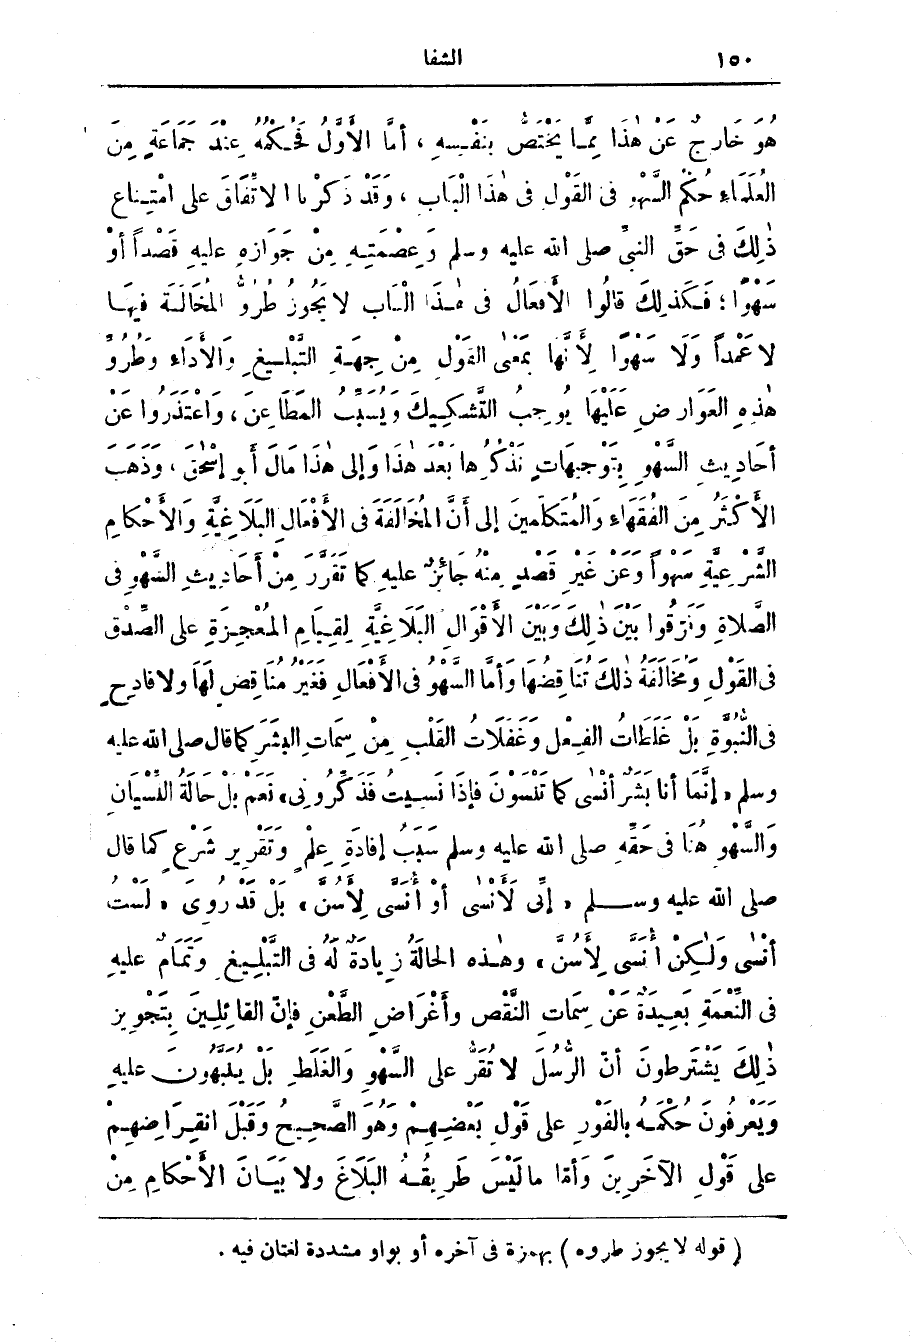 ١٥٠ الشفا
هُوَ خَارِجٌ عَنْ هٰذَا مِمَّا يَخْتَصُّ بِنَفْسِهِ ، أمَّا الأَوَّلُ فَحُكْمُهُ عِنْدَ جَمَاعَةٍ مِنَ
العُلَمَاءِ حُكْمُ السَّهْوِ فى القَوْلِ فى هٰذَا الْبَابِ ، وَقَدْ ذَكَرْنا الاتِّفَاقَ على امْتِناعِ
ذٰلِكَ فى حَقِّ النبىِّ صلى الله عليه وسلم وَعِصْمَتِهِ مِنْ جَوَازِهِ عليهِ قَصْداً أوْ
سَهْوًا ؛ فَكَذلِكَ قالُوا الأفعَالُ فى هٰذَا الْبَابِ لا يَجُوزُ طُرُوُّ المُخَالَفَةِ فِيهَا
لا عَمْداً وَلَا سَهْوًا لِأَنَّهَا بِمَعْنَى القَوْلِ مِنْ جِهَةِ التَّبْلِيغِ وَالأَدَاءِ وَطُرُوُّ
هٰذِهِ العَوَارِضِ عَلَيْهَا يُوجِبُ التَّشكِيكَ وَيُسَبِّبُ المَطَاعِنَ ، وَاعْتَذَرُوا عَنْ
أحَادِيثِ السَّهْوِ بِتَوْجِيهَاتٍ نَذْكُرُها بَعْدَ هٰذَا وَإلى هٰذَا مَالَ أبو إسْحٰقَ ، وَذَهَبَ
الأَكْثَرُ مِنَ الفُقَهَاءِ وَالمُتَكَلِّمِينَ إلى أنَّ المُخَالَفَةَ فى الأَفْعَالِ البَلَاغِيَّةِ وَالأَحْكامِ
الشَّرْعِيَّةِ سَهْواً وَعَنْ غَيْرِ قَصْدٍ مِنْهُ جَائِزٌ عليهِ كما تَقَرَّرَ مِنْ أحَادِيثِ السَّهْوِ فى
الصَّلاةِ وَفَرَّقُوا بَيْنَ ذٰلِكَ وَبَيْنَ الأقْوَالِ البَلَاغِيَّةِ لِقِيَامِ المُعْجِزَةِ على الصِّدْقِ
فى القَوْلِ وَمُخَالَفَةُ ذٰلِكَ تُنَاقِضُهَا وَأمَّا السَّهْوُ فى الأَفْعَالِ فَغَيْرُ مُنَاقِضٍ لَهَا ولا قادِحٍ
فى النُّبُوَّةِ بَلْ غَلَطَاتُ الفِعْلِ وَغَفَلَاتُ القَلْبِ مِنْ سِمَاتِ البَشَرِ كما قال صلى الله عليه
وسلم « إنَّمَا أنا بَشَرٌ أنْسٰى كما تَنْسَوْنَ فَإذَا نَسِيتُ فَذَكِّرُونِى » نَعَمْ بلْ حَالَةُ النِّسْيَانِ
وَالسَّهْوِ هُنَا فى حَقِّهِ صلى الله عليه وسلم سَبَبُ إفَادَةِ عِلْمٍ وَتَقْرِيرِ شَرْعٍ كما قال
صلى الله عليه وسلم « إنِّى لَأَنْسٰى أوْ أُنَسَّى لِأَسُنَّ » بَلْ قَدْ رُوِىَ « لَسْتُ
أنْسٰى وَلٰكِنْ أُنَسَّى لِأَسُنَّ » وهٰذه الحالَةُ زِيادَةٌ لَهُ فى التَّبْلِيغِ وَتَمَامٌ عليهِ
فى النِّعْمَةِ بَعِيدَةٌ عَنْ سِمَاتِ النَّقْصِ وأغْرَاضِ الطَّعْنِ فإنَّ القَائِلِينَ بِتَجْوِيزِ
ذٰلِكَ يَشْتَرِطُونَ أنّ الرُّسُلَ لا تُقَرُّ على السَّهْوِ وَالغَلَطِ بَلْ يُنَبَّهُونَ عليهِ
وَيَعْرِفُونَ حُكْمَهُ بالفَوْرِ على قَوْلِ بَعْضِهِمْ وهُوَ الصَّحِيحُ وَقَبْلَ انْقِرَاضِهِمْ
على قَوْلِ الآخَرِينَ وَأمَّا ما لَيْسَ طَرِيقُهُ البَلَاغَ ولا بَيَانَ الأَحْكامِ مِنْ
( قوله لا يجوز طروه ) بهمزة فى آخره أو بواو مشددة لغتان فيه .